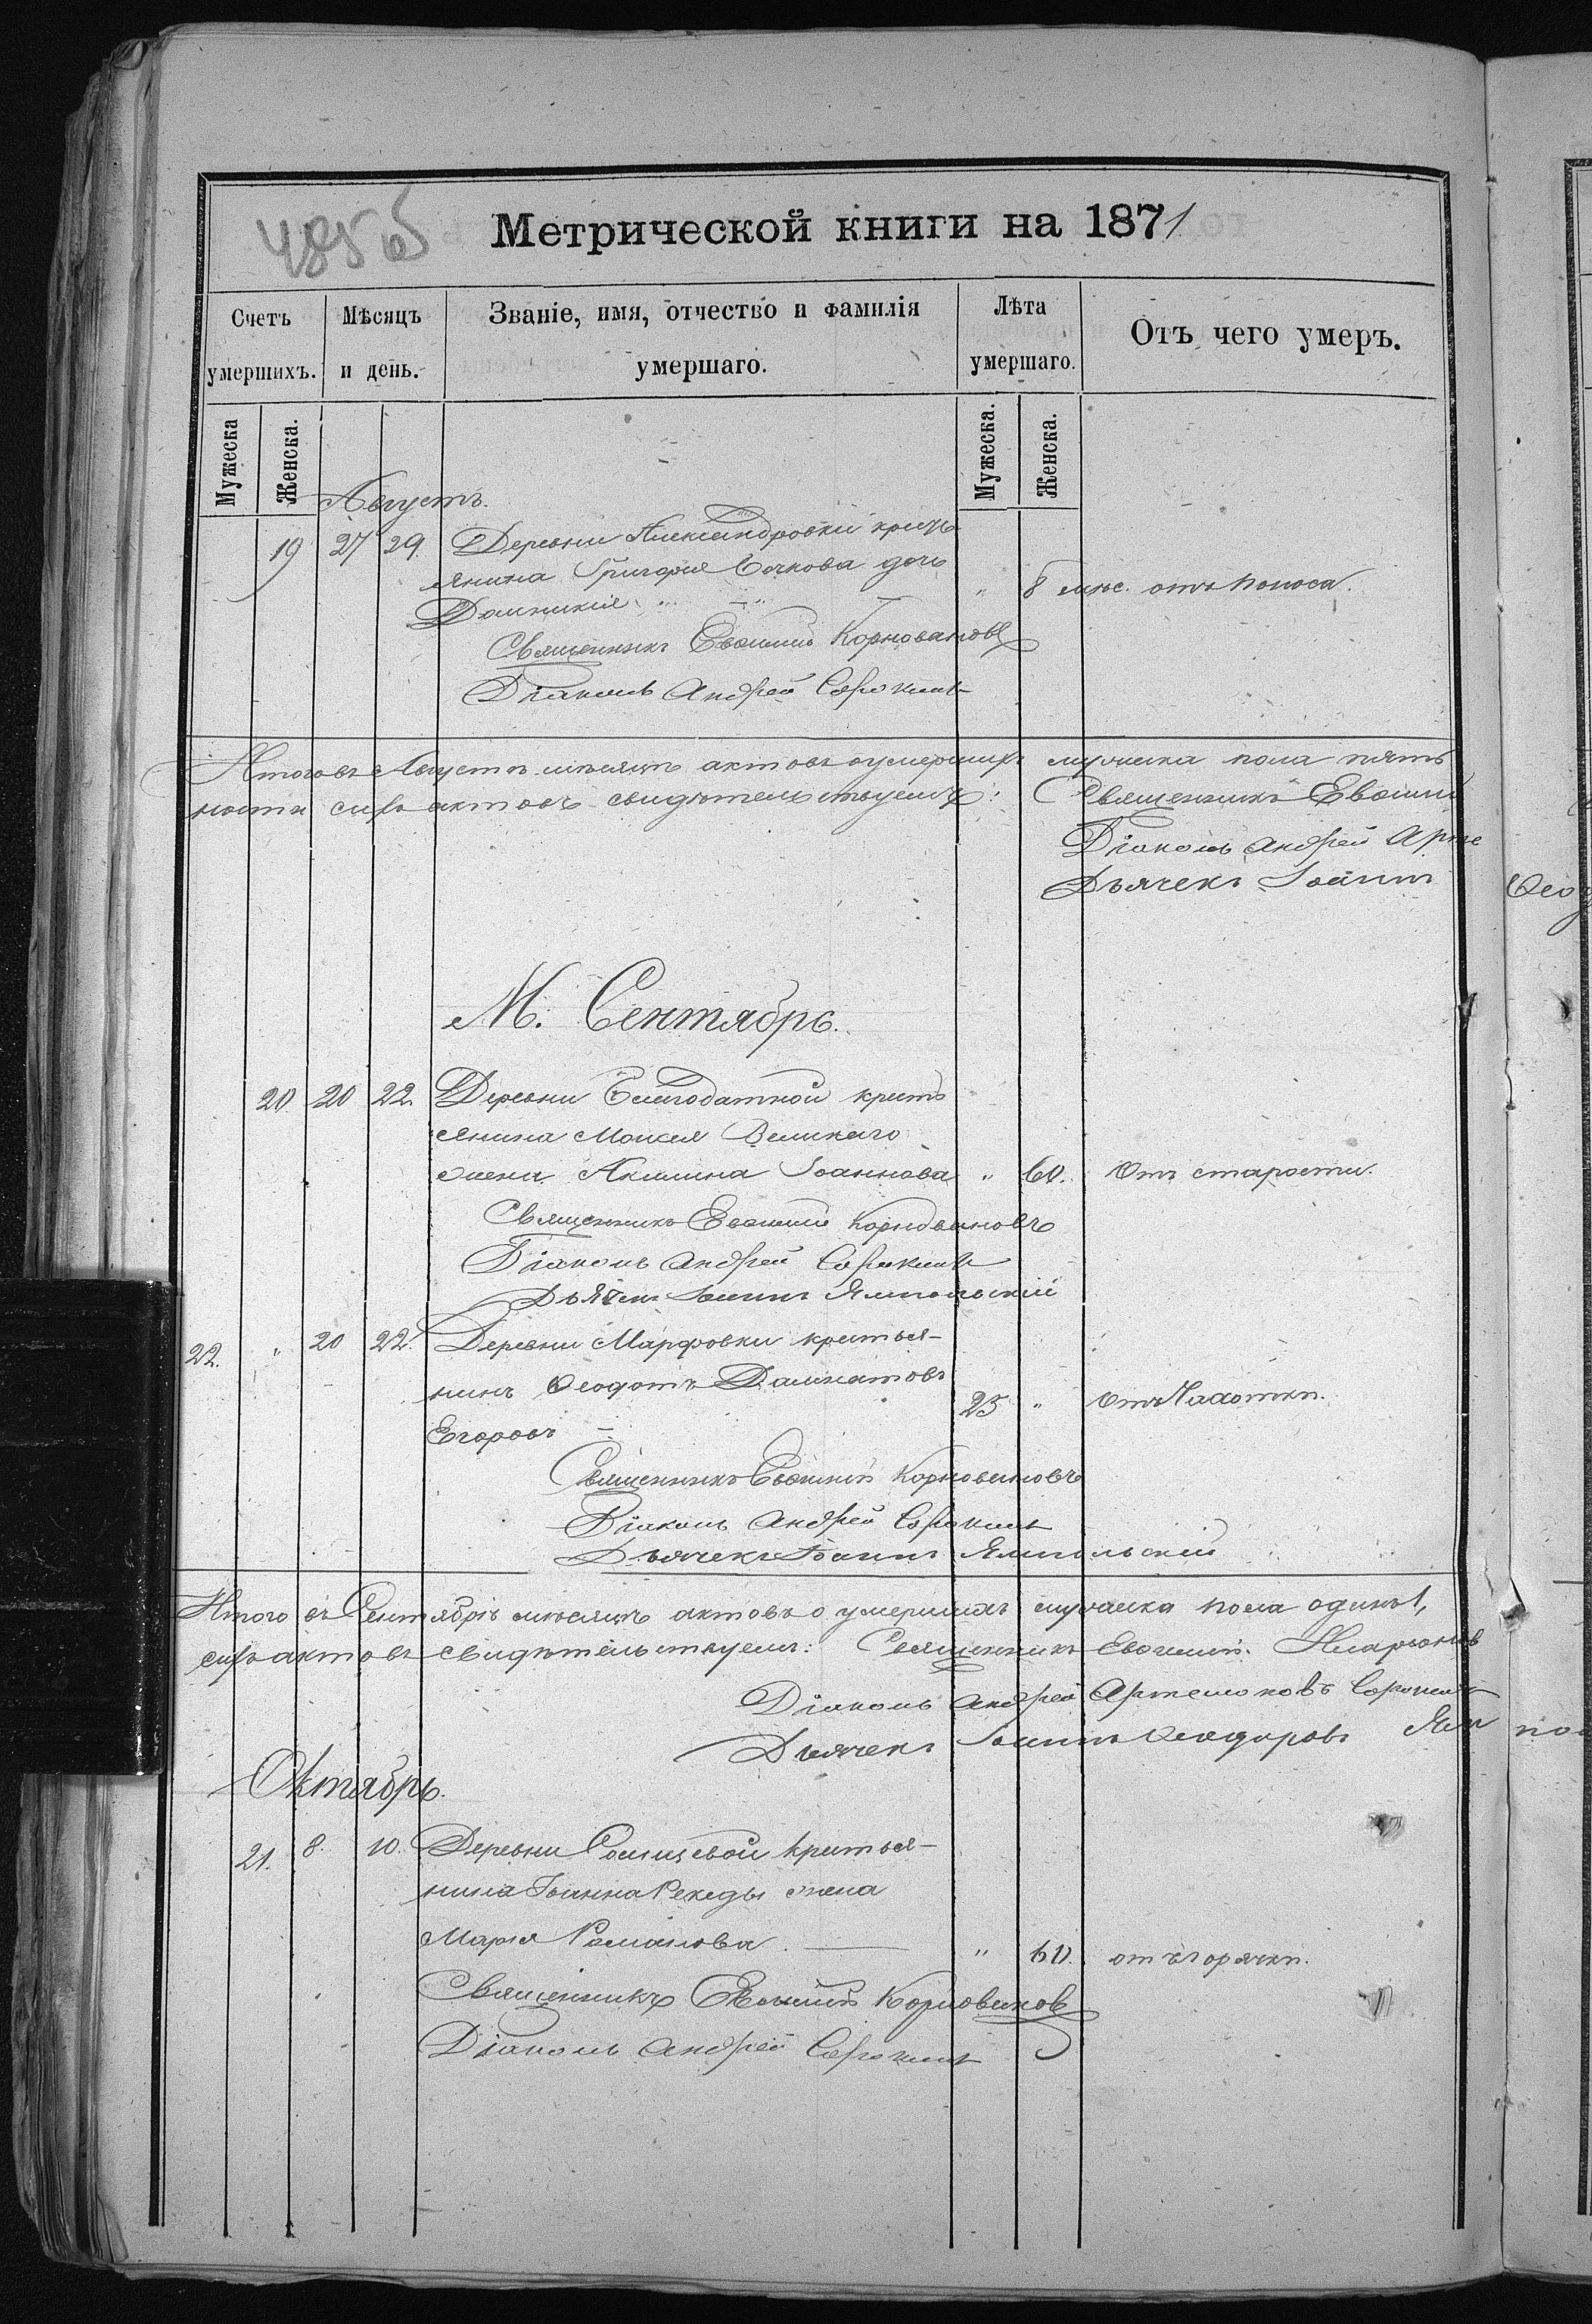 485 об
Метрической книги на 1871
Счетъ умершихъ.
Мѣсяцъ и день.
Званіе, имя, отчество и фамилія умершаго.
Лѣта умершаго.
Отъ чего умеръ.
Мужеска
Женска.
Мужеска.
Женска.
Августъ.
19 27 29. Деревни Александровки кресть
янина Григорія дочь
Домникія " — " — " 8 мѣс. отъ поноса.
Священникъ Евѳимій Корновановъ
Діаконъ Андрей Сорокинъ
Итого въ Августѣ мѣсяцѣ актовъ о умершихъ мужеска пола пять
ности сихъ актовъ свидѣтельствуемъ: Священникъ Евѳимій
Діаконъ Андрей Арте
Дьячекъ Іоаннъ Ѳео
М. Сентябрь.
20 20 22. Деревни Благодатной кресть
янина Моисея Великаго
жена Акилина Іоаннова " 60. Отъ старости.
Священникъ Евѳимій Корновановъ
Діаконъ Андрей Сорокинъ
Дьячекъ Іоаннъ Ямпольскій
22. " 20 22. Деревни Марфовки крестья-
нинъ Ѳеодотъ Далматовъ
Егоровъ — 25 " Отъ Чахотки.
Священникъ Евѳимій Корновановъ
Діаконъ Андрей Сорокинъ
Дьячекъ Іоаннъ Ямпольскій
Итого въ Сентябрѣ мѣсяцѣ актовъ о умершихъ мужеска пола одинъ 1,
сихъ актовъ свидѣтельствуемъ: Священникъ Евѳимій Иларіоновъ
Діаконъ Андрей Артемоновъ Сорокинъ
Дьячекъ Іоаннъ Ѳеодоровъ Ям по
Октябрь.
21. 8. 10. Деревни крестья-
нина Іоанна Рекеды жена
Марія Романова. — " 60. отъ горячки.
Священникъ Евѳимій Корновановъ
Діаконъ Андрей Сорокинъ